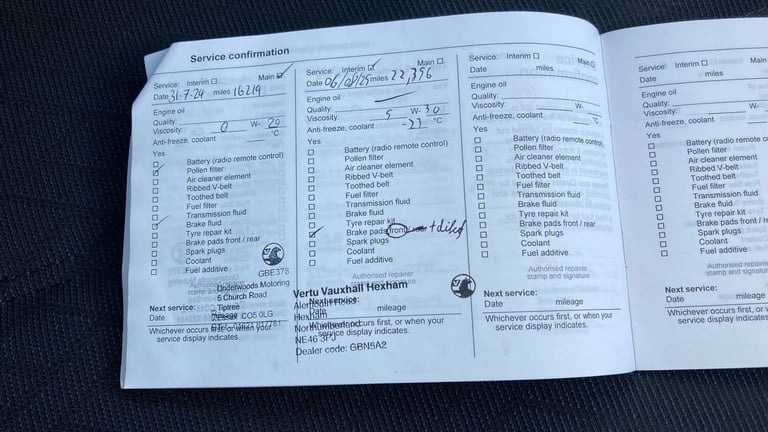 Service confirmation
Service: Interim ☐ Main ☑
Date 31-7-24 miles 16219
Engine oil
Quality:
Viscosity: 0 W- 20
Anti-freeze, coolant °C
Yes
☐ Battery (radio remote control)
☑ Pollen filter
☐ Air cleaner element
☐ Ribbed V-belt
☐ Toothed belt
☐ Fuel filter
☐ Transmission fluid
☑ Brake fluid
☐ Tyre repair kit
☐ Brake pads front / rear
☐ Spark plugs
☐ Coolant
☐ Fuel additive
GBE378
Underwoods Motoring
5 Church Road
Tiptree
Essex CO5 0LG
Next service:
Date
Whichever occurs first, or when your
service display indicates.
Service: Interim ☑ Main ☐
Date 06/08/25 miles 22,356
Engine oil
Quality:
Viscosity: 5 W- 30
Anti-freeze, coolant -23 °C
Yes
☐ Battery (radio remote control)
☐ Pollen filter
☐ Air cleaner element
☐ Ribbed V-belt
☐ Toothed belt
☐ Fuel filter
☐ Transmission fluid
☐ Brake fluid
☐ Tyre repair kit
☑ Brake pads front + discs
☐ Spark plugs
☐ Coolant
☐ Fuel additive
Authorised repairer
stamp and signature
Vertu Vauxhall Hexham
Next service:
Date mileage
Hexham
Whichever occurs first, or when your
service display indicates.
NE46 3PJ
Dealer code: GBN5A2
Service: Interim ☐ Main ☐
Date miles
Engine oil
Quality:
Viscosity: W-
Anti-freeze, coolant °C
Yes
☐ Battery (radio remote control)
☐ Pollen filter
☐ Air cleaner element
☐ Ribbed V-belt
☐ Toothed belt
☐ Fuel filter
☐ Transmission fluid
☐ Brake fluid
☐ Tyre repair kit
☐ Brake pads front / rear
☐ Spark plugs
☐ Coolant
☐ Fuel additive
Authorised repairer
stamp and signature
Next service:
Date mileage
Whichever occurs first, or when your
service display indicates.
Service: Interim ☐ Main
Date miles
Engine oil
Quality:
Viscosity: W-
Anti-freeze, coolant
Yes
☐ Battery (radio remote
☐ Pollen filter
☐ Air cleaner element
☐ Ribbed V-belt
☐ Toothed belt
☐ Fuel filter
☐ Transmission fluid
☐ Brake fluid
☐ Tyre repair kit
☐ Brake pads front / rear
☐ Spark plugs
☐ Coolant
☐ Fuel additive
Authorised repairer
stamp and signature
Next service:
Date mileage
Whichever occurs first, or when
service display indicates